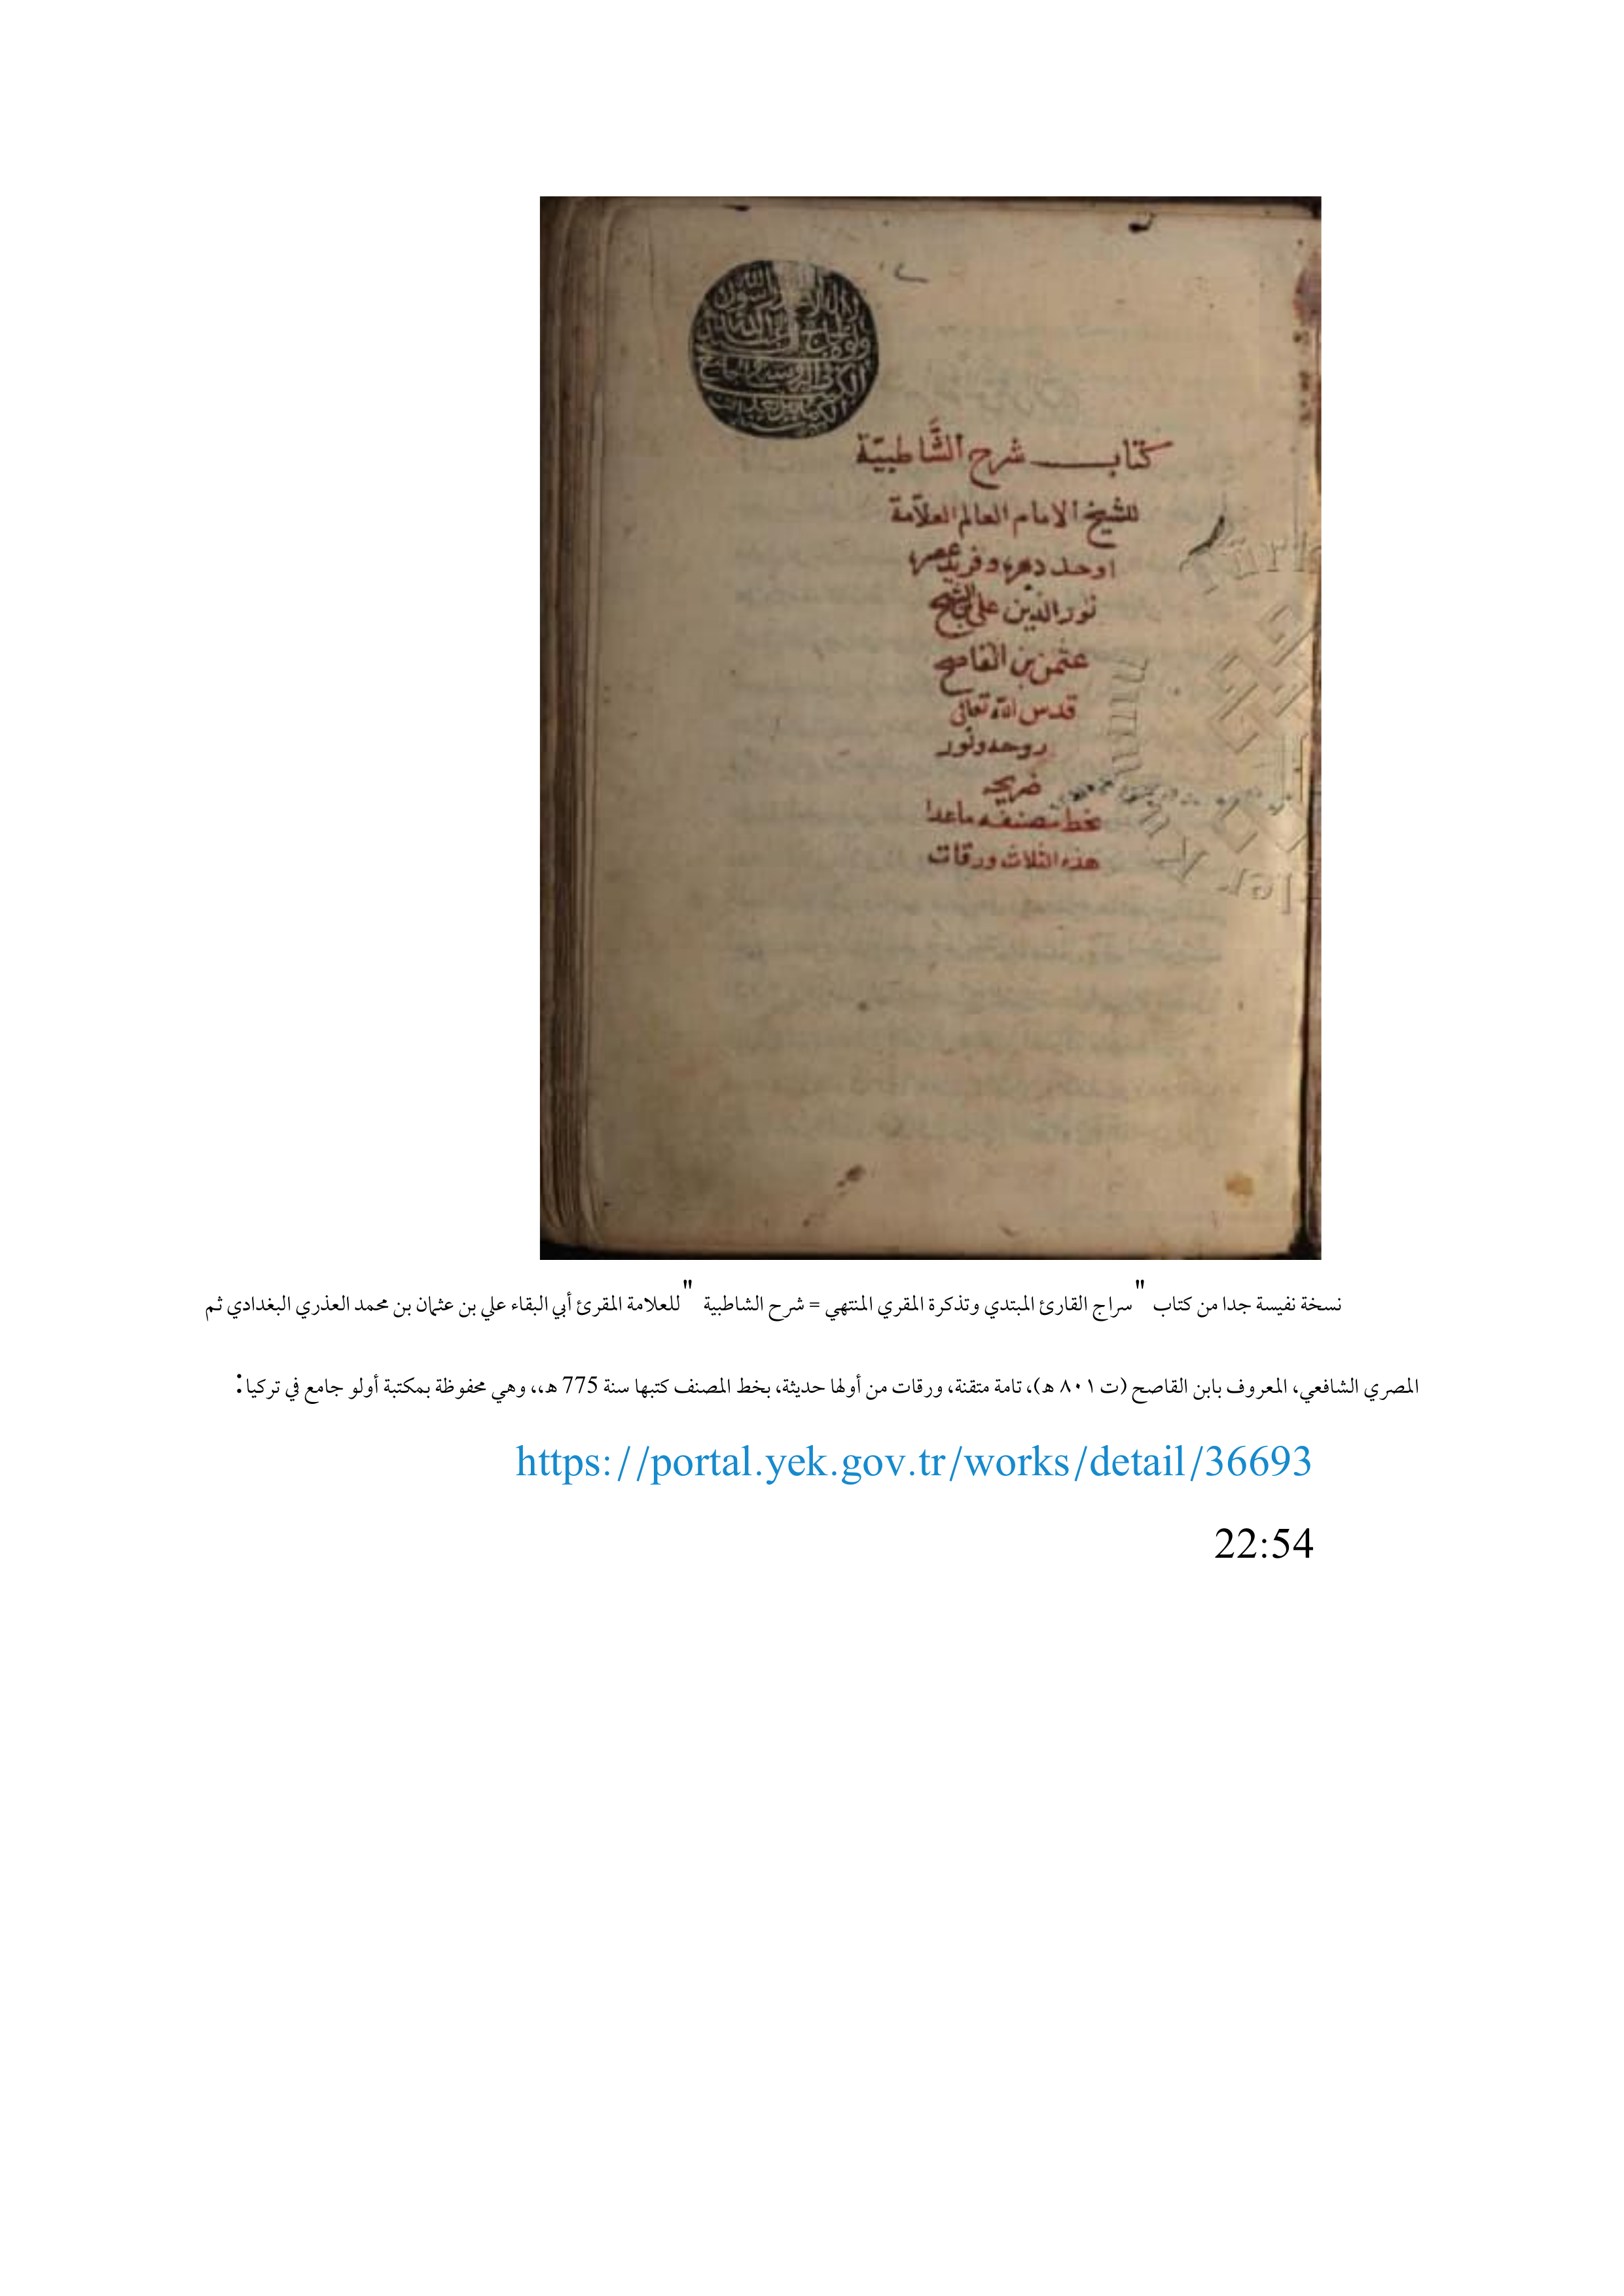 كتاب شرح الشَّاطبيّة
للشيخ الامام العالم العلاّمة
اوحد دهره وفريد عصره
نور الدين علي بن الشيخ
عثمن بن القاصح
قدس الله تعالى
روحه ونور
ضريحه
بخط مصنفه ماعدا
هذه الثلاث ورقات
نسخة نفيسة جدا من كتاب "سراج القارئ المبتدي وتذكرة المقري المنتهي = شرح الشاطبية" للعلامة المقرئ أبي البقاء علي بن عثمان بن محمد العذري البغدادي ثم
المصري الشافعي، المعروف بابن القاصح (ت ٨٠١ هـ)، تامة متقنة، ورقات من أولها حديثة، بخط المصنف كتبها سنة 775 هـ،، وهي محفوظة بمكتبة أولو جامع في تركيا:
https://portal.yek.gov.tr/works/detail/36693
22:54